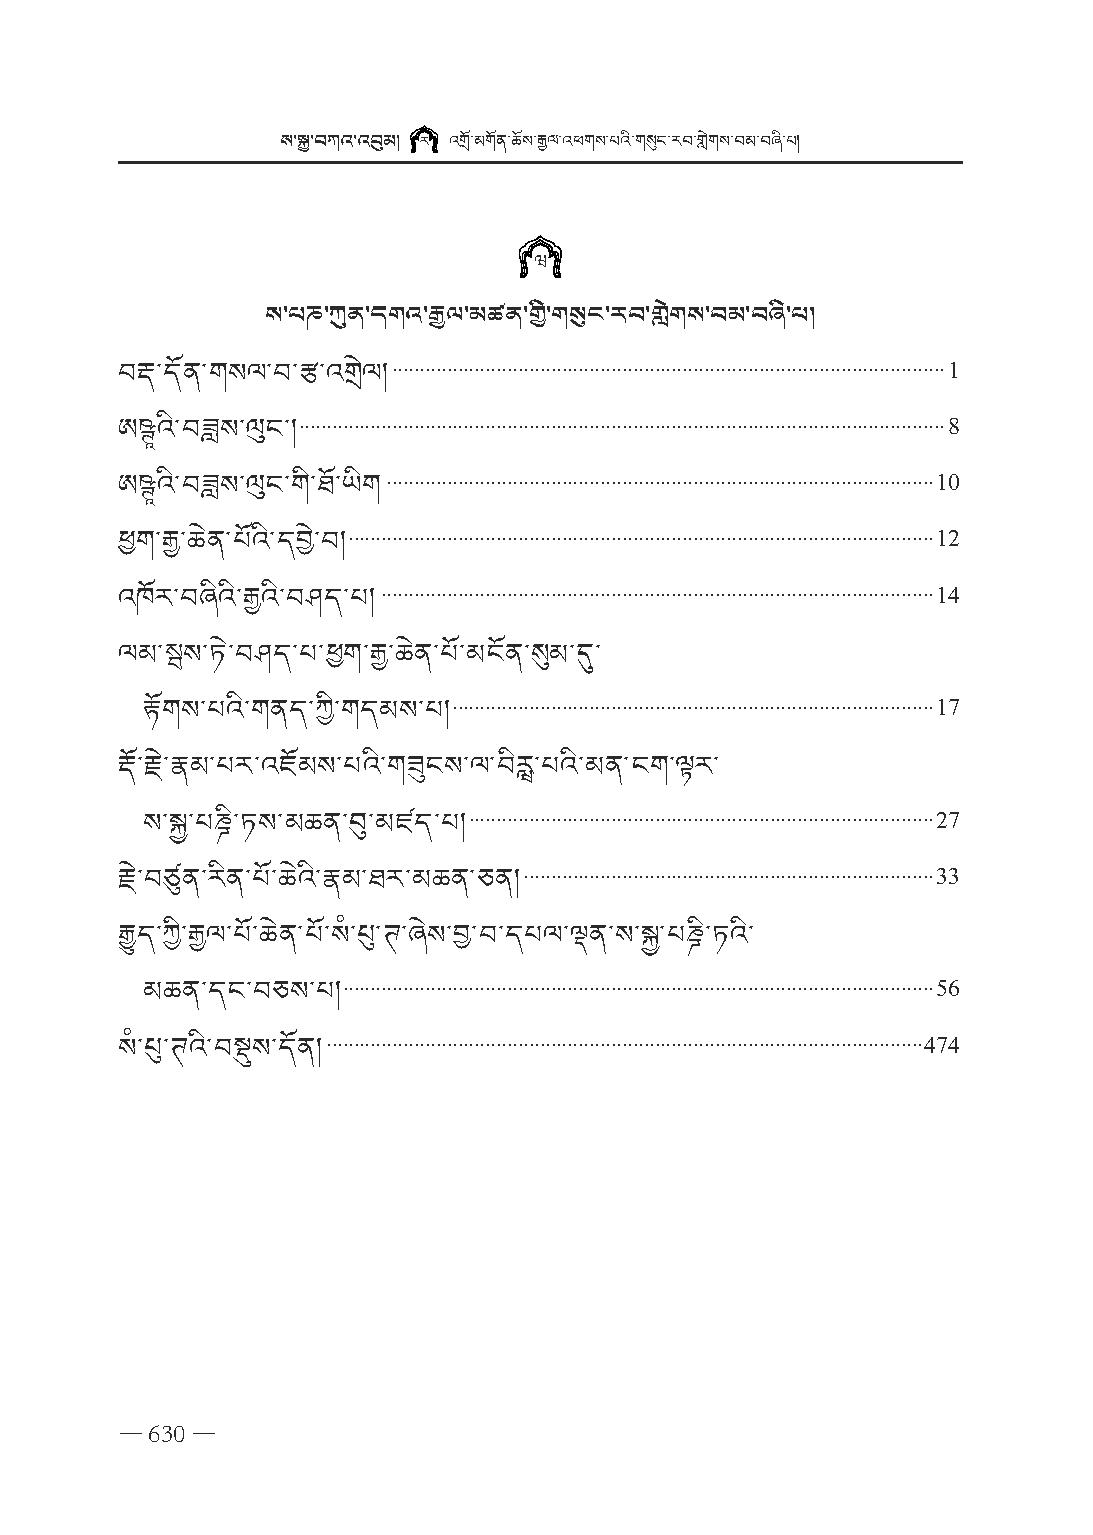 ས་སྐྱ་བཀའ་འབུམ། ར འགྲོ་མགོན་ཆོས་རྒྱལ་འཕགས་པའི་གསུང་རབ་གླེགས་བམ་བཞི་པ།
ས་པཎ་ཀུན་དགའ་རྒྱལ་མཚན་གྱི་གསུང་རབ་གླེགས་བམ་བཞི་པ།
བརྡ་དོན་གསལ་བ་རྩ་འགྲེལ། 1
བཟླས་ལུང་། 8
བཟླས་ལུང་གི་ཐོ་ཡིག 10
ཕྱག་རྒྱ་ཆེན་པོའི་དབྱེ་བ། 12
འཁོར་བཞིའི་རྒྱའི་བཤད་པ། 14
ལམ་སྦས་ཏེ་བཤད་པ་ཕྱག་རྒྱ་ཆེན་པོ་མངོན་སུམ་དུ་
རྟོགས་པའི་གནད་ཀྱི་གདམས་པ། 17
རྡོ་རྗེ་རྣམ་པར་འཇོམས་པའི་གཟུངས་ལ་བིརྺ་པའི་མན་ངག་ལྟར་
ས་སྐྱ་པཎྜི་ཏས་མཆན་བུ་མཛད་པ། 27
རྗེ་བཙུན་རིན་པོ་ཆེའི་རྣམ་ཐར་མཆན་ཅན། 33
རྒྱུད་ཀྱི་རྒྱལ་པོ་ཆེན་པོ་སཾ་པུ་ཊ་ཞེས་བྱ་བ་དཔལ་ལྡན་ས་སྐྱ་པཎྜི་ཏའི་
མཆན་དང་བཅས་པ། 56
སཾ་པུ་ཊའི་བསྡུས་དོན། 474
— 630 —